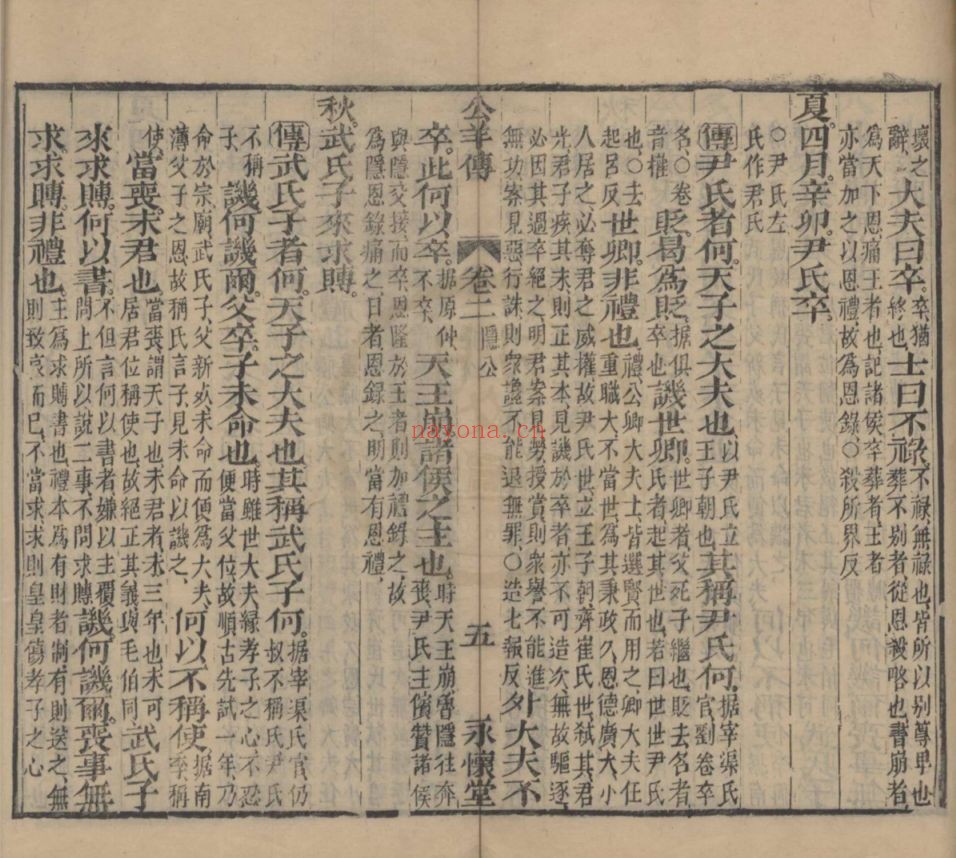 壞之辭大夫曰卒。卒猶終也士曰不祿。不祿無祿也皆所以别尊卑也葬不别者從恩殺略也書崩者
為天下恩痛王者也記諸侯卒葬者王者亦當加之以恩禮故為恩錄○殺所界反
夏四月。辛卯尹氏卒。
○尹氏左氏作君氏
傳尹氏者何。天子之大夫也。以尹氏立王子朝也其稱尹氏何。據宰渠氏官劉卷卒
名○卷音權貶曷為貶。據俱卒也譏世卿。世卿者父死子繼也貶去名者氏者起其世也若曰世世尹氏
也○去起呂反世卿非禮也。禮公卿大夫士皆選賢而用之卿大夫任重職大不當世為其秉政久恩德廣大小
人居之必奪君之威權故尹氏世立王子朝齊崔氏世弑其君光君子疾其末則正其本見譏於卒者亦不可造次無故驅逐
必因其過卒絕之明君案見勞授賞則衆譽不能進無功案見惡行誅則衆讒不能退無罪○造七報反外大夫不
公羊傳 卷二 隱公 五 永懷堂
卒。此何以卒。據原仲不卒天王崩諸侯之主也。時天王崩魯隱往奔喪尹氏主儐贊諸侯
與隱交接而卒恩隆於王者則加禮錄之故為隱恩錄痛之日者恩錄之明當有恩禮
秋。武氏子來求賻。
傳武氏子者何。天子之大夫也。其稱武氏子何。據宰渠氏官仍叔不稱氏尹氏
不稱子譏何譏爾。父卒。子未命也。時雖世大夫緣孝子之心不忍便當父位故順古先試一年乃
命於宗廟武氏子父新死未命而便為大夫薄父子之恩故稱氏言子見未命以譏之何以不稱使。據南季稱
使當喪。未君也。當喪謂天子也未君者未三年也未可居君位稱使也故絕正其義與毛伯同武氏子
來求賻。何以書。不但言何以書者嫌以主覆問上所以說二事不問求賻譏何譏爾。喪事無
求求賻非禮也。主為求賻書也禮本為有財者制有則送之無則致哀而已不當求求則皇皇傷孝子之心
nayona.cn